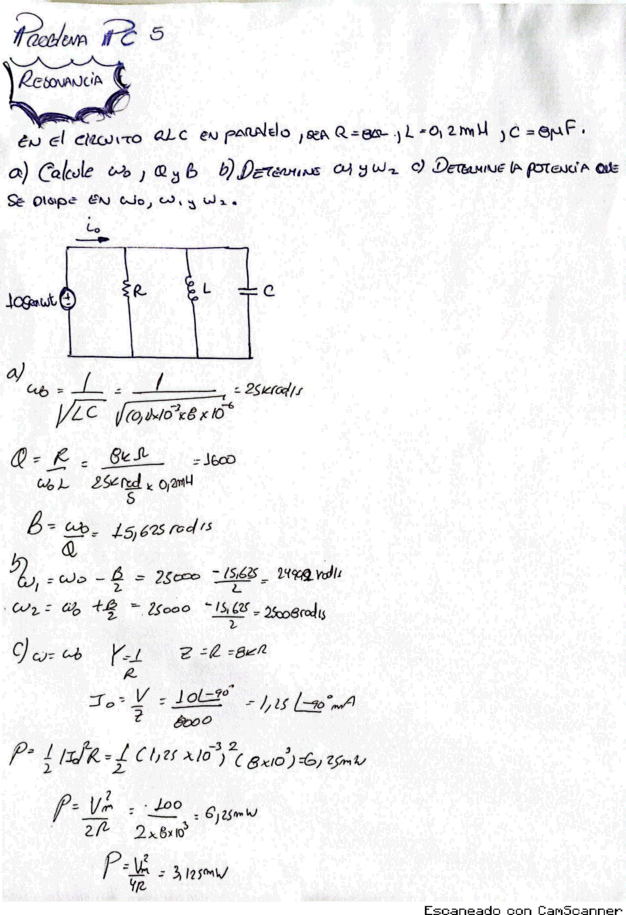 Problema PC 5
RESONANCIA
EN El CIRCUITO RLC EN PARALELO, SEA R=8KΩ, L=0,2mH, C=8μF.
a) Calcule ω0, Q y B b) DETERMINE ω1 y ω2 c) DETERMINE LA POTENCIA QUE
SE DISIPE EN ω0, ω1 y ω2.
i0
10senωt R L C
a) ω0 = 1/√LC = 1/√(0,2x10^-3x8x10^-6) = 25krad/s
Q = R/ω0L = 8kΩ/(25krad/s x 0,2mH) = 1600
B = ω0/Q = 15,625 rad/s
b) ω1 = ω0 - B/2 = 25000 -15,625/2 = 24992 rad/s
ω2 = ω0 + B/2 = 25000 -15,625/2 = 25008 rad/s
C) ω=ω0 Y=1/R Z=R=8KΩ
I0 = V/Z = 10∠-90°/8000 = 1,25∠-90° mA
P = 1/2 |I0|²R = 1/2 (1,25 x10^-3)²(8x10³)=6,25mW
P = Vm²/2R = 100/2x8x10³ = 6,25mW
P = Vm²/4R = 3,125mW
Escaneado con CamScanner